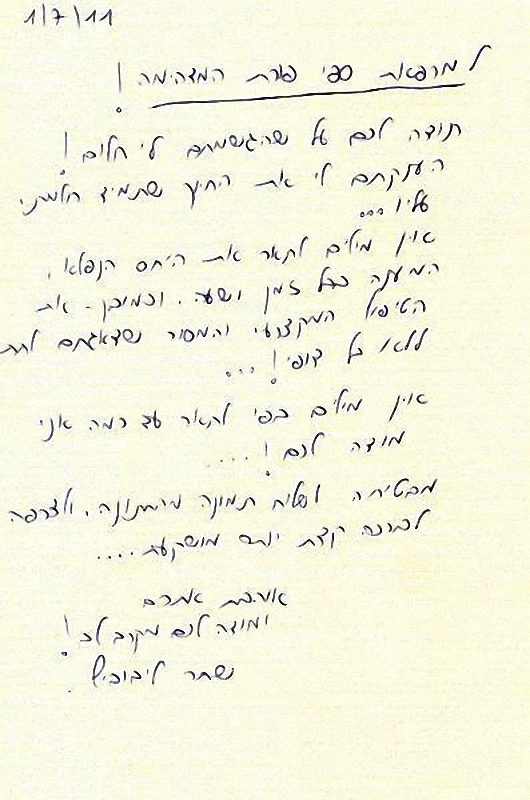 1/7/11
למרפאת ספי פורת המדהימה!
תודה לכם על שהגשמתם לי חלום!
הענקתם לי את החיוך שתמיד חלמתי
עליו...
אין מילים לתאר את היחס הנפלא,
המענה בכל זמן ושעה. וכמובן- את
הטיפול המקצועי והמסור שדאגתם לתת
ללא כל דופי!...
אין מילים בפי לתאר עד כמה אני
מודה לכם!....
מבטיחה לשלוח תמונה מהחתונה, ולצרפה
לברכה קצת יותר מושקעת....
אוהבת אתכם
ומודה לכם מקרב לב!
שחר ליבוביץ'